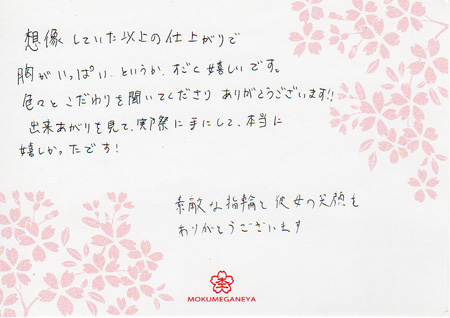 想像していた以上の仕上がりで
胸がいっぱい、というか、すごく嬉しいです。
色々とこだわりを聞いてくださり ありがとうございます!!
出来あがりを見て、実際に手にして、本当に
嬉しかったです!
素敵な指輪と彼女の笑顔を
ありがとうございます
MOKUMEGANEYA